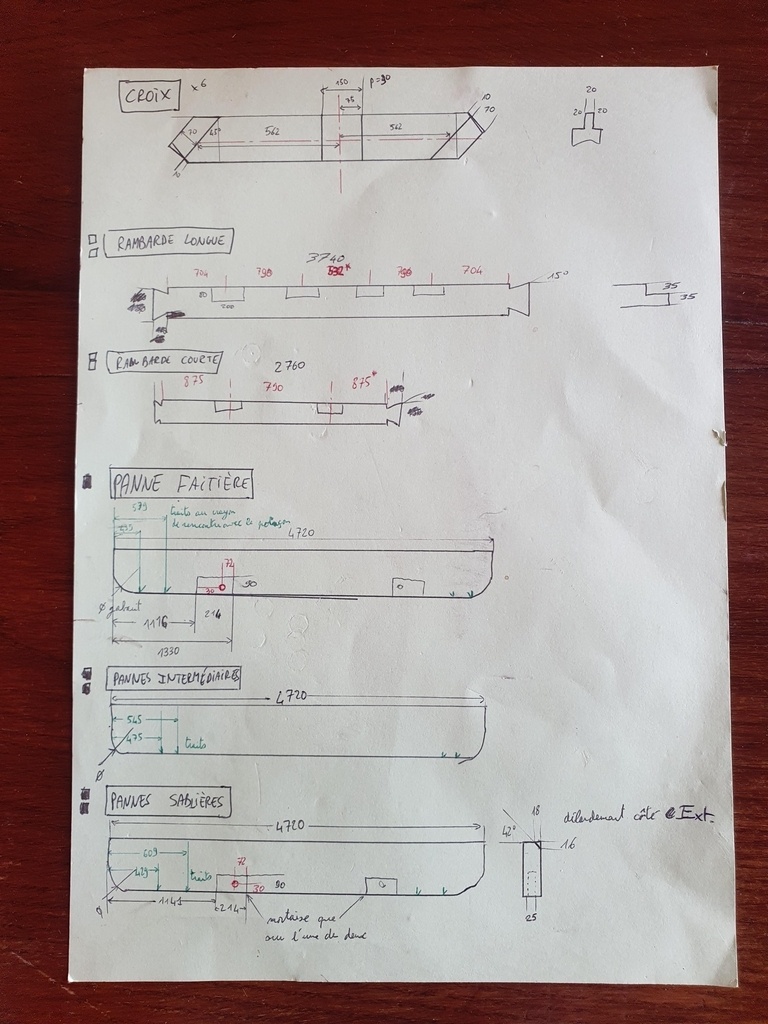 CROIX x6
150 P=30
75
562 562
70 45° 10
10
70
20
20 20
RAMBARDE LONGUE
3740
704 790 704
80 200
15°
35
35
RAMBARDE COURTE
2760
875 790 875*
PANNE FAÎTIÈRE
579
traits au crayon
de rencontre avec le
4720
72
30 90
Ø gabarit
1116 214
1330
PANNES INTERMÉDIAIRES
4720
545
475 traits
Ø
PANNES SABLIÈRES
4720
609
429 traits
72
30 90
Ø
1141 214
mortaise que
sur l'une des deux
42° 18
16
25
délardement côté Ext.